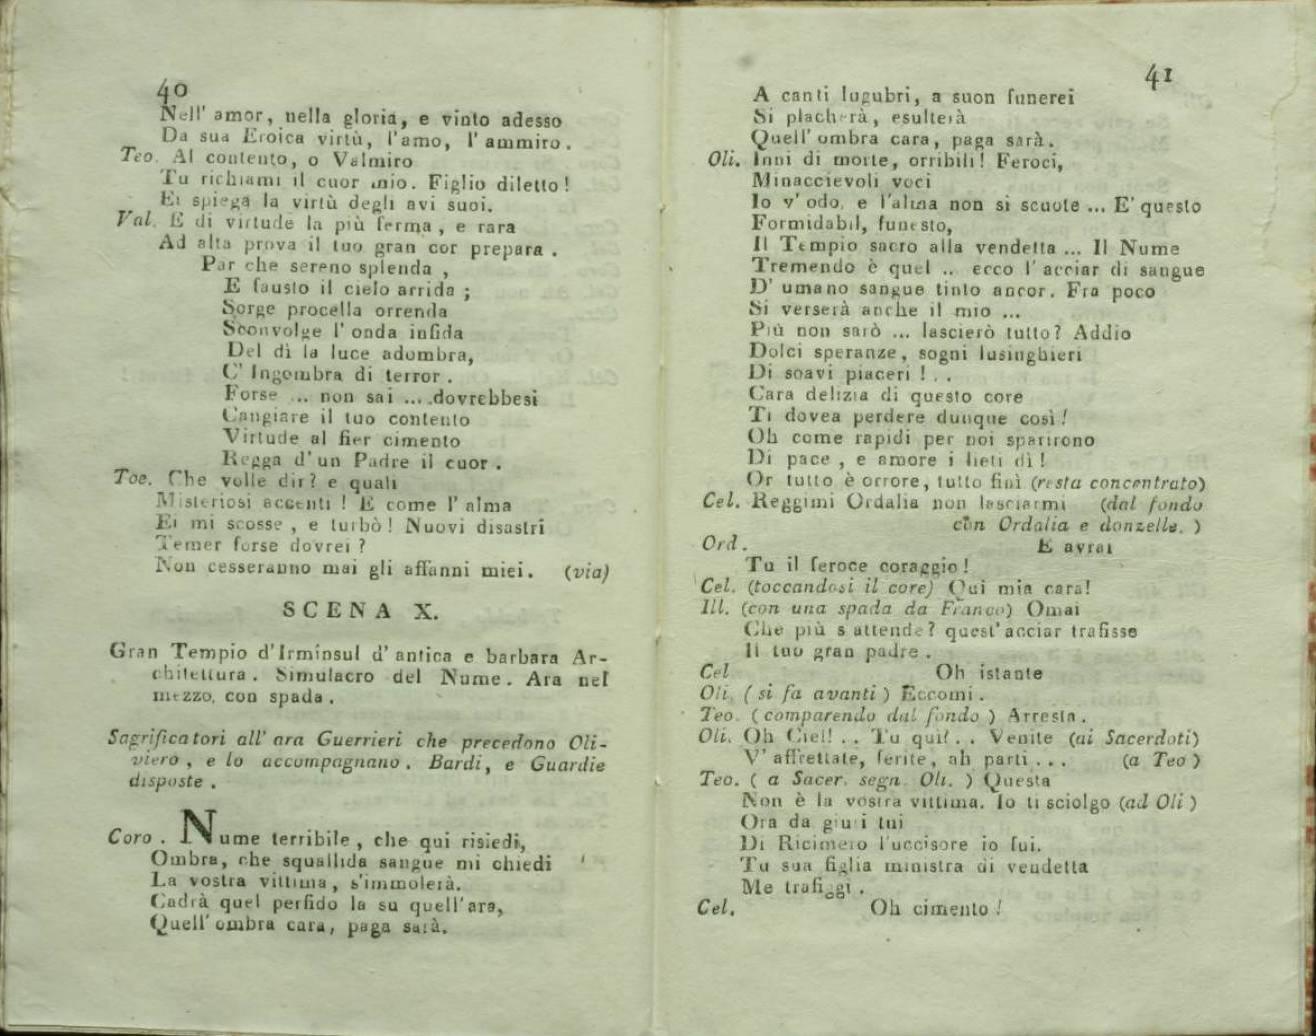 40
Nell' amor, nella gloria, e vinto adesso
Da sua Eroica virtù, l'amo, l' ammiro.
Teo. Al contento, o Valmiro
Tu richiami il cuor mio. Figlio diletto!
Ei spiega la virtù degli avi suoi.
Val. E di virtude la più ferma, e rara
Ad alta prova il tuo gran cor prepara.
Par che sereno splenda,
E fausto il cielo arrida;
Sorge procella orrenda
Sconvolge l' onda infida
Del dì la luce adombra,
C' Ingombra di terror.
Forse ... non sai ... .dovrebbesi
Cangiare il tuo contento
Virtude al fier cimento
Regga d' un Padre il cuor.
Toe. Che volle dir? e quali
Misteriosi accenti! E come l' alma
Ei mi scosse, e turbò! Nuovi disastri
Temer forse dovrei?
Non cesseranno mai gli affanni miei. (via)
SCENA X.
Gran Tempio d'Irminsul d' antica e barbara Ar-
chitettura. Simulacro del Nume. Ara nel
mezzo, con spada.
Sagrificatori all' ara Guerrieri che precedono Oli-
viero, e lo accompagnano. Bardi, e Guardie
disposte.
Coro. Nume terribile, che qui risiedi,
Ombra, che squallida sangue mi chiedi
La vostra vittima, s'immolerà.
Cadrà quel perfido la su quell'ara,
Quell' ombra cara, paga sarà.
41
A canti lugubri, a suon funerei
Si placherà, esulterà
Quell' ombra cara, paga sarà.
Oli. Inni di morte, orribili! Feroci,
Minaccievoli voci
Io v' odo, e l'alma non si scuote ... E' questo
Formidabil, funesto,
Il Tempio sacro alla vendetta ... Il Nume
Tremendo è quel .. ecco l' acciar di sangue
D' umano sangue tinto ancor. Fra poco
Si verserà anche il mio ...
Più non sarò ... lascierò tutto? Addio
Dolci speranze, sogni lusinghieri
Di soavi piaceri! . .
Cara delizia di questo core
Ti dovea perdere dunque così!
Oh come rapidi per noi sparirono
Di pace, e amore i lieti dì!
Or tutto è orrore, tutto finì (resta concentrato)
Cel. Reggimi Ordalia non lasciarmi (dal fondo
con Ordalia e donzelle.)
Ord. E avrai
Tu il feroce coraggio!
Cel. (toccandosi il core) Qui mia cara!
Ill. (con una spada da Franco) Omai
Che più s attende? quest' acciar trafisse
Il tuo gran padre.
Cel. Oh istante
Oli. (si fa avanti) Eccomi.
Teo. (comparendo dal fondo) Arresta.
Oli. Oh Ciel! . . Tu qui! . . Venite (ai Sacerdoti)
V' affrettate, ferite, ah parti ... (a Teo)
Teo. (a Sacer. segn. Oli.) Questa
Non è la vostra vittima. Io ti sciolgo (ad Oli)
Ora da giuri tui
Di Ricimero l'uccisore io fui.
Tu sua figlia ministra di vendetta
Me trafiggi.
Cel. Oh cimento!